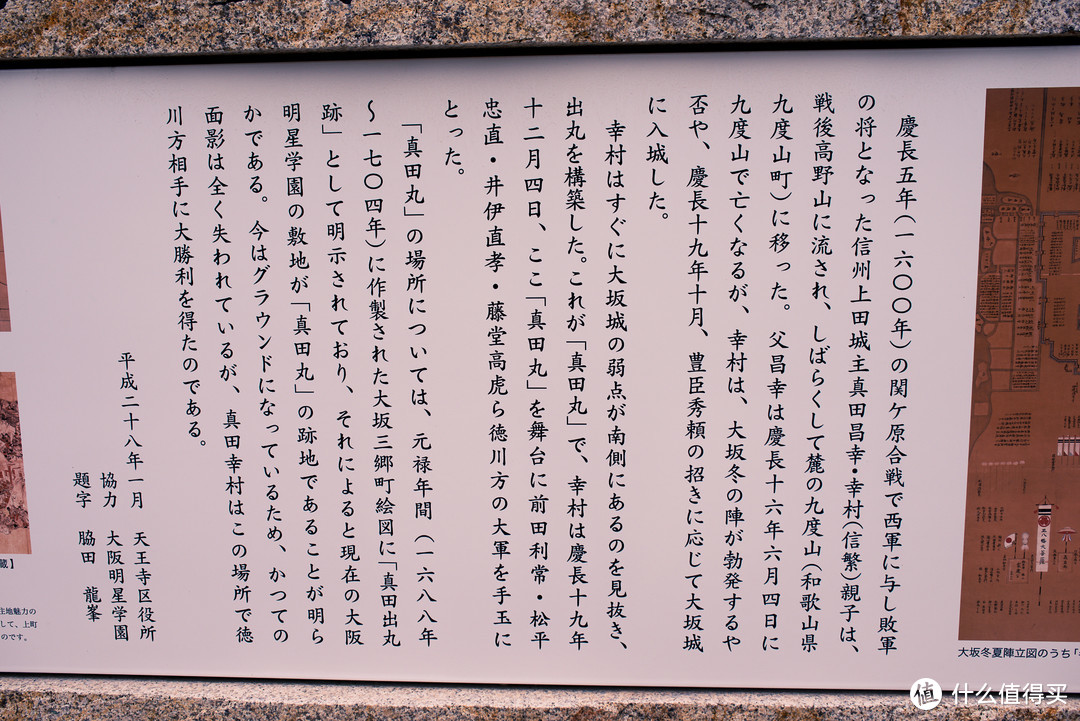 慶長五年(一六〇〇年)の関ケ原合戦で西軍に与し敗軍
の将となった信州上田城主真田昌幸・幸村(信繁)親子は、
戦後高野山に流され、しばらくして麓の九度山(和歌山県
九度山町)に移った。父昌幸は慶長十六年六月四日に
九度山で亡くなるが、幸村は、大坂冬の陣が勃発するや
否や、慶長十九年十月、豊臣秀頼の招きに応じて大坂城
に入城した。
幸村はすぐに大坂城の弱点が南側にあるのを見抜き、
出丸を構築した。これが「真田丸」で、幸村は慶長十九年
十二月四日、ここ「真田丸」を舞台に前田利常・松平
忠直・井伊直孝・藤堂高虎ら徳川方の大軍を手玉に
とった。
「真田丸」の場所については、元禄年間(一六八八年
～一七〇四年)に作製された大坂三郷町絵図に「真田出丸
跡」として明示されており、それによると現在の大阪
明星学園の敷地が「真田丸」の跡地であることが明ら
かである。今はグラウンドになっているため、かつての
面影は全く失われているが、真田幸村はこの場所で徳
川方相手に大勝利を得たのである。
平成二十八年一月 天王寺区役所
協力 大阪明星学園
題字 脇田 龍峯
大坂冬夏陣立図のうち「
蔵】
住地魅力の
して、上町
のです。
値 什么值得买